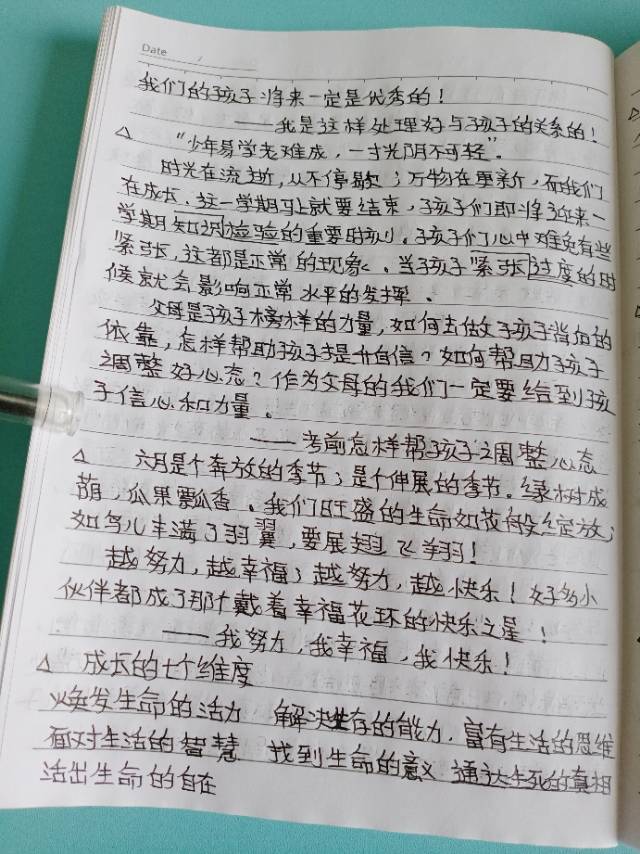 Date /
我们的孩子将来一定是优秀的！
——我是这样处理好与孩子的关系的！
△ “少年易学老难成，一寸光阴不可轻”。
时光在流逝，从不停歇；万物在更新，而我们
在成长。这一学期马上就要结束，孩子们即将迎来一
学期知识检验的重要时刻。孩子们心中难免有些
紧张，这都是正常的现象。当孩子紧张过度的时
候就会影响正常水平的发挥。
父母是孩子榜样的力量，如何去做孩子背后的
依靠，怎样帮助孩子提升自信？如何帮助孩子
调整好心态？作为父母的我们一定要给到孩
子信心和力量。
——考前怎样帮孩子调整心态
△ 六月是个奔放的季节；是个伸展的季节。绿树成
荫，瓜果飘香。我们旺盛的生命如花般绽放；
如鸟儿丰满了羽翼，要展翅飞翔！
越努力，越幸福；越努力，越快乐！好多小
伙伴都成了那个戴着幸福花环的快乐之星！
——我努力，我幸福，我快乐！
△ 成长的七个维度
焕发生命的活力 解决生存的能力，富有生活的思维
面对生活的智慧 找到生命的意义 通达生死的真相
活出生命的自在